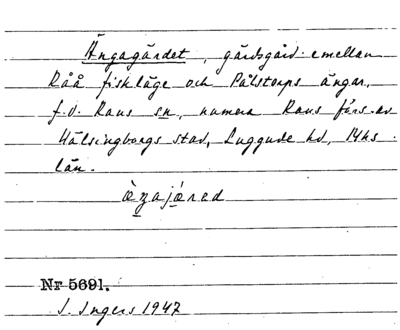 Ängagärdet, gärdsgård emellan
Råå fiskläge och Pålstorps ängar,
f.d. Raus sn, numera Raus förs. av
Hälsingborgs stad, Luggude hd, Mhs
län.
Nr 5691.
I. Ingers 1947